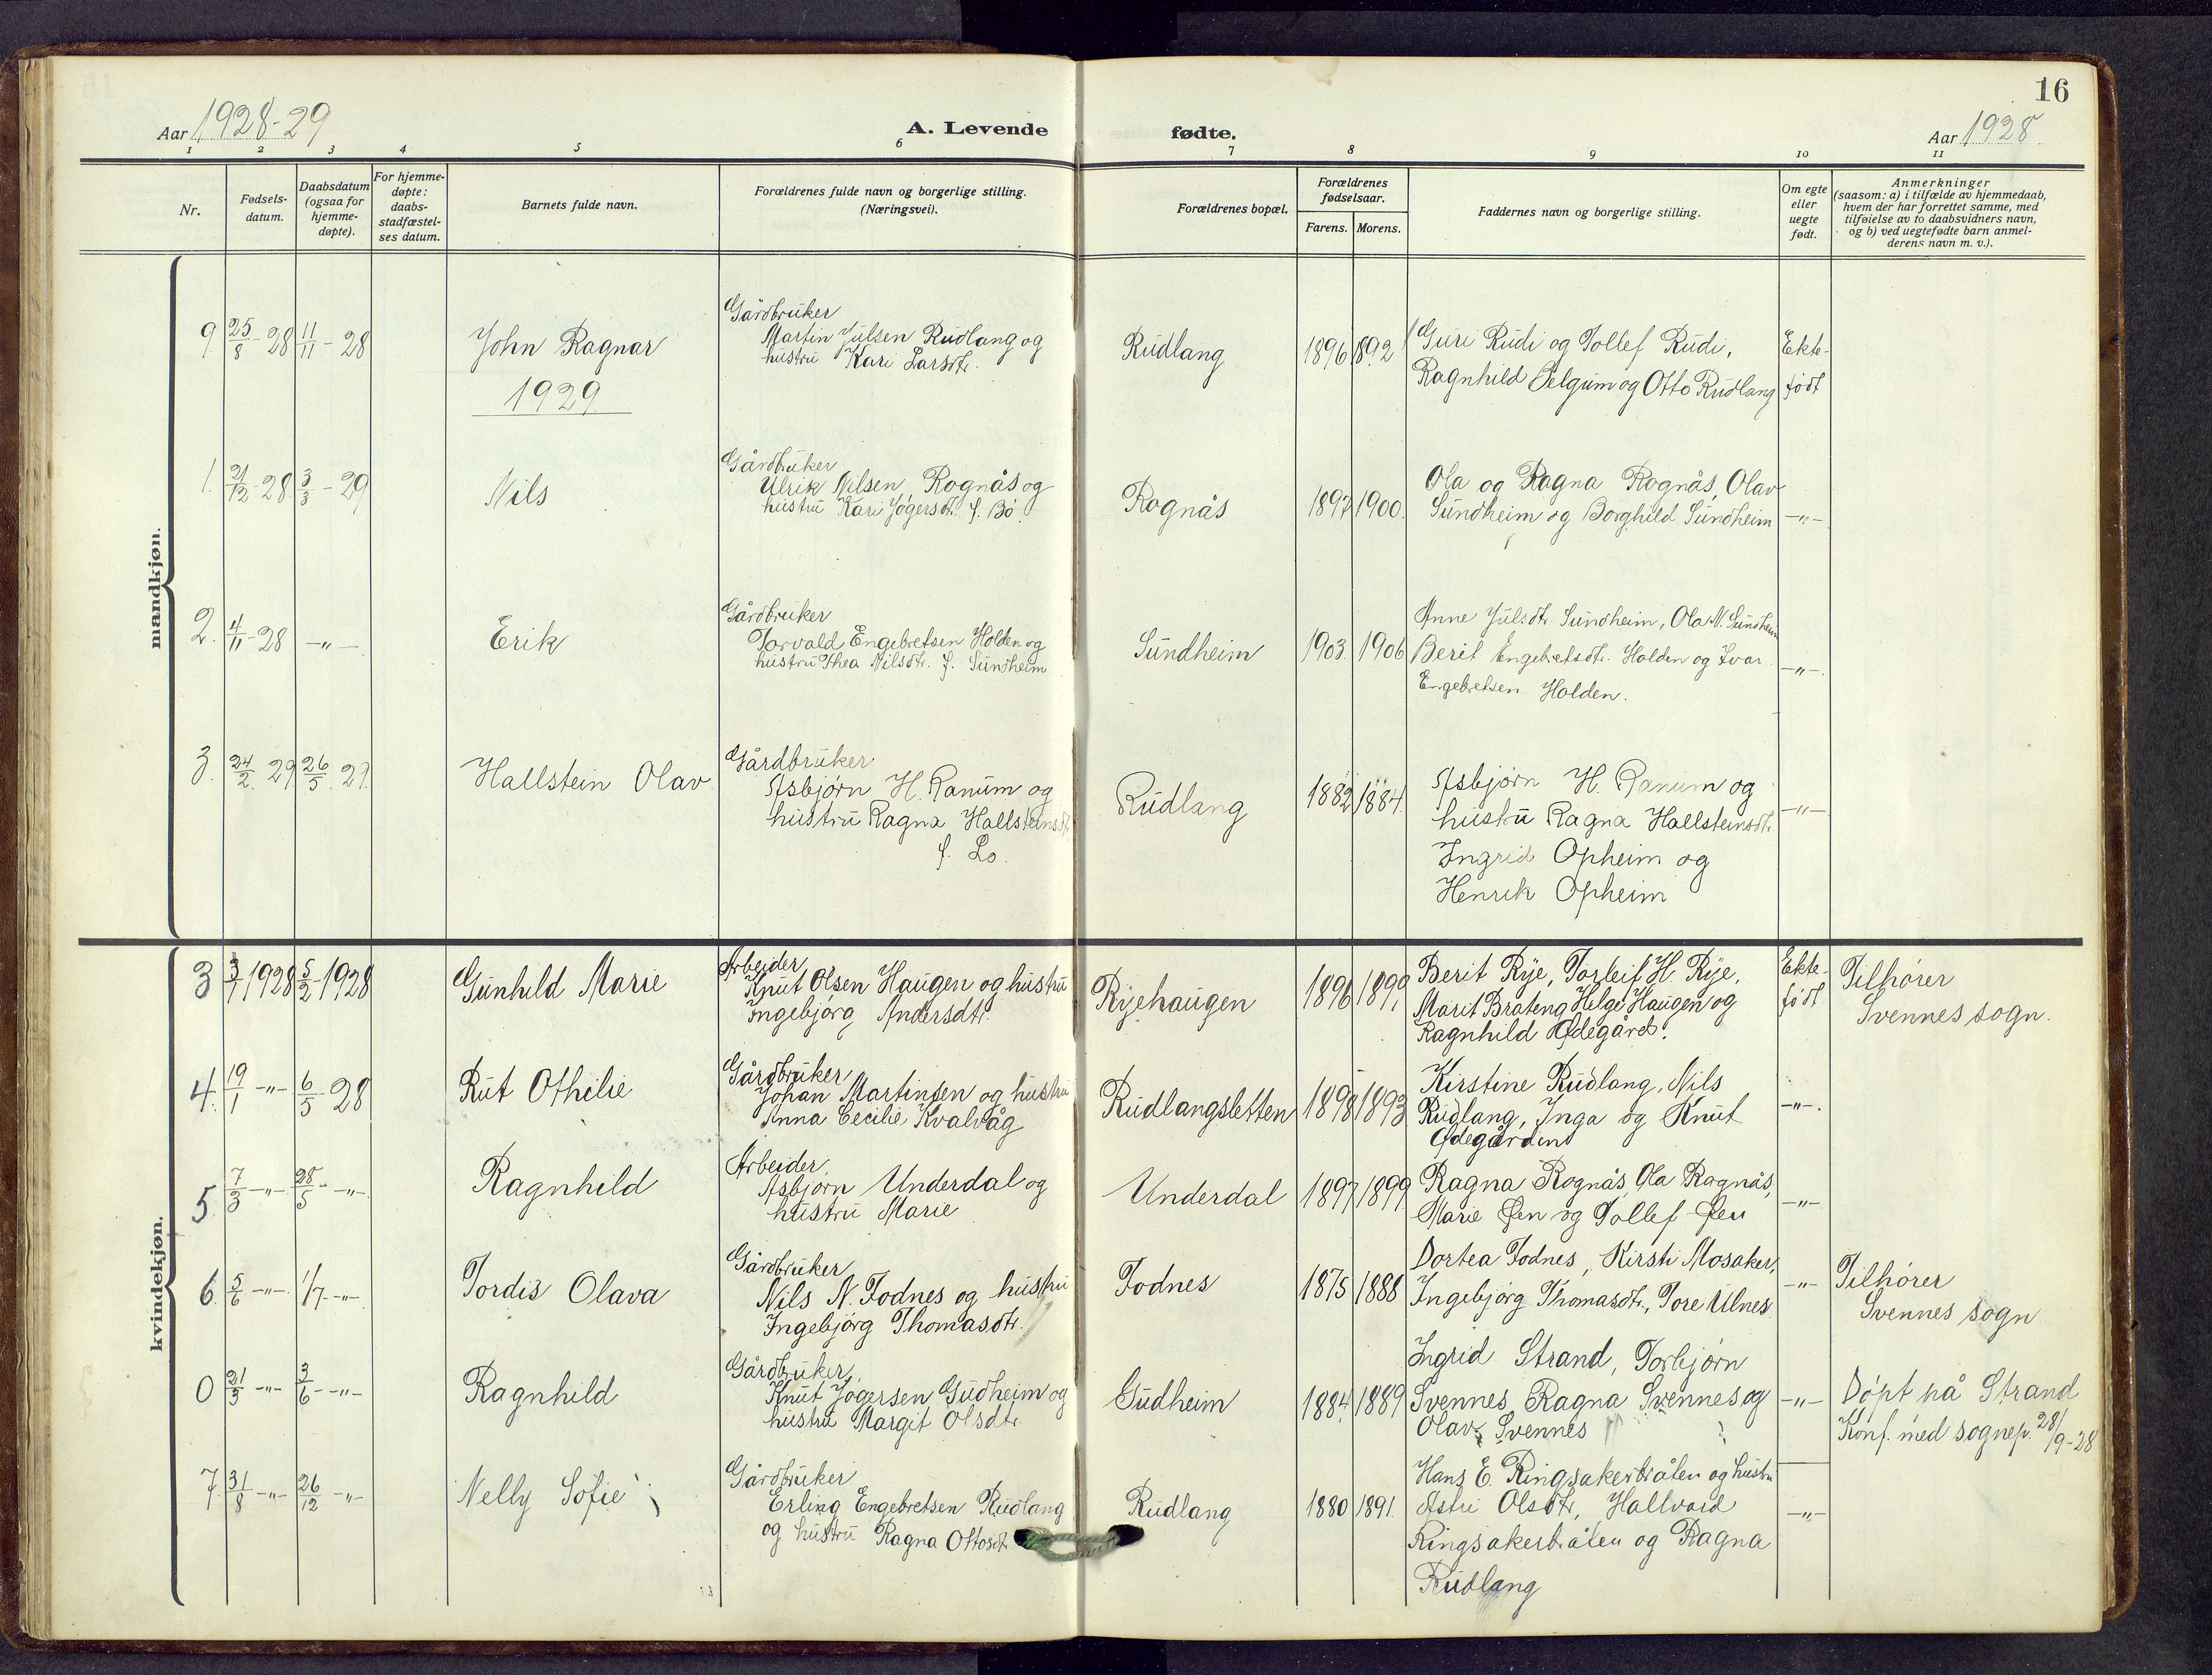 16
Aar 1928-29
A. Levende fødte.
Aar 1928.
1 2 3 4 5 6 7 8 9 10 11
Nr.
Fødsels-
datum.
Daabsdatum
(ogsaa for
hjemme-
døpte).
For hjemme-
døpte:
daabs-
stadfæstel-
ses datum.
Barnets fulde navn.
Forældrenes fulde navn og borgerlige stilling.
(Næringsvei).
Forældrenes bopæl.
Forældrenes
fødselsaar.
Farens. Morens.
Faddernes navn og borgerlige stilling.
Om egte
eller
uegte
født.
Anmerkninger
(saasom: a) i tilfælde av hjemmedaab,
hvem der har forrettet samme, med
tilføielse av to daabsvidners navn,
og b) ved uegtefødte barn anmel-
derens navn m. v.).
mandkjøn.
9. 25/8 - 28 11/11 - 28
John Ragnar
Gårdbruker
Martin Julsen Rudlang og
hustru Kari Larsdtr.
Rudlang
1896 1892
Guri Rudi og Tollef Rudi,
Ragnhild Selgum og Otto Rudlang
Ekte-
født
1929
1. 21/12 - 28 3/3 - 29
Nils
Gårdbruker
Ulrik Nilsen Rognås og
hustru Kari Jøgersdtr. f. Bø.
Rognås
1897 1900.
Ola og Ragna Rognås, Olav
Sundheim og Borghild Sundheim
-"-
2. 4/11 - 28 -"-
Erik
Gårdbruker
Torvald Engebretsen Holden og
hustru Thea Nilsdtr. f. Sundheim
Sundheim
1903. 1906
Anne Julsdtr. Sundheim, Ola N. Sundheim
Berit Engebretsdtr. Holden og Ivar
Engebretsen Holden.
-"-
3. 24/2. 29 26/5. 29.
Hallstein Olav
Gårdbruker
Asbjørn H. Ranum og
hustru Ragna Hallsteinsdtr.
f. Lo.
Rudlang
1882 1884.
Asbjørn H. Ranum og
hustru Ragna Hallsteinsdtr.
Ingrid Opheim og
Henrik Opheim
-"-
kvindekjøn.
3 3/1 1928 5/2 - 1928
Gunhild Marie
Arbeider
Knut Olsen Haugen og hustru
Ingebjørg Andersdtr.
Ryehaugen
1896 1899,
Berit Rye, Torleif H. Rye,
Marit Bråteng Helge Haugen og
Ragnhild Ødegård.
Ekte-
født
Tilhører
Svennes sogn.
4. 19/1 -"- 6/5 28
Rut Othilie
Gårdbruker
Johan Martinsen og hustru
Anna Cecilie Kvalvåg
Rudlangsletten
1898 1893
Kirstine Rudlang, Nils
Rudlang, Inga og Knut
Ødegården
-"-.
5. 7/3 -"- 28/5 -"-
Ragnhild
Arbeider
Asbjørn Underdal og
hustru Marie
Underdal
1897 1899
Ragna Rognås, Ola Rognås,
Marie Øen og Tollef Øen
-"-
6. 5/6 -"- 1/7 -"-
Tordis Olava
Gårdbruker
Nils N. Fodnes og hustru
Ingebjørg Thomasdtr.
Fodnes
1875 1888
Dortea Fodnes, Kirsti Mosaker,
Ingebjørg Thomasdtr., Tore Ulnes
-"-
Tilhører
Svennes sogn
0 21/3 -"- 3/6 -"-
Ragnhild
Gårdbruker,
Knut Jøgersen Gudheim og
hustru Margit Olsdtr.
Gudheim
1884. 1889
Ingrid Strand, Torbjørn
Svennes, Ragna Svennes og
Olav Svennes
-"-
Døpt på Strand
Konf. med sognep. 28/9-28
7. 31/8 -"- 26/12 -"-
Nelly Sofie
Gårdbruker
Erling Engebretsen Rudlang
og hustru Ragna Ottosdtr.
Rudlang
1880 1891.
Hans E. Ringsakerbråten og hustru
Astri Olsdtr, Hallvard
Ringsakerbråten og Ragna
Rudlang
-"-